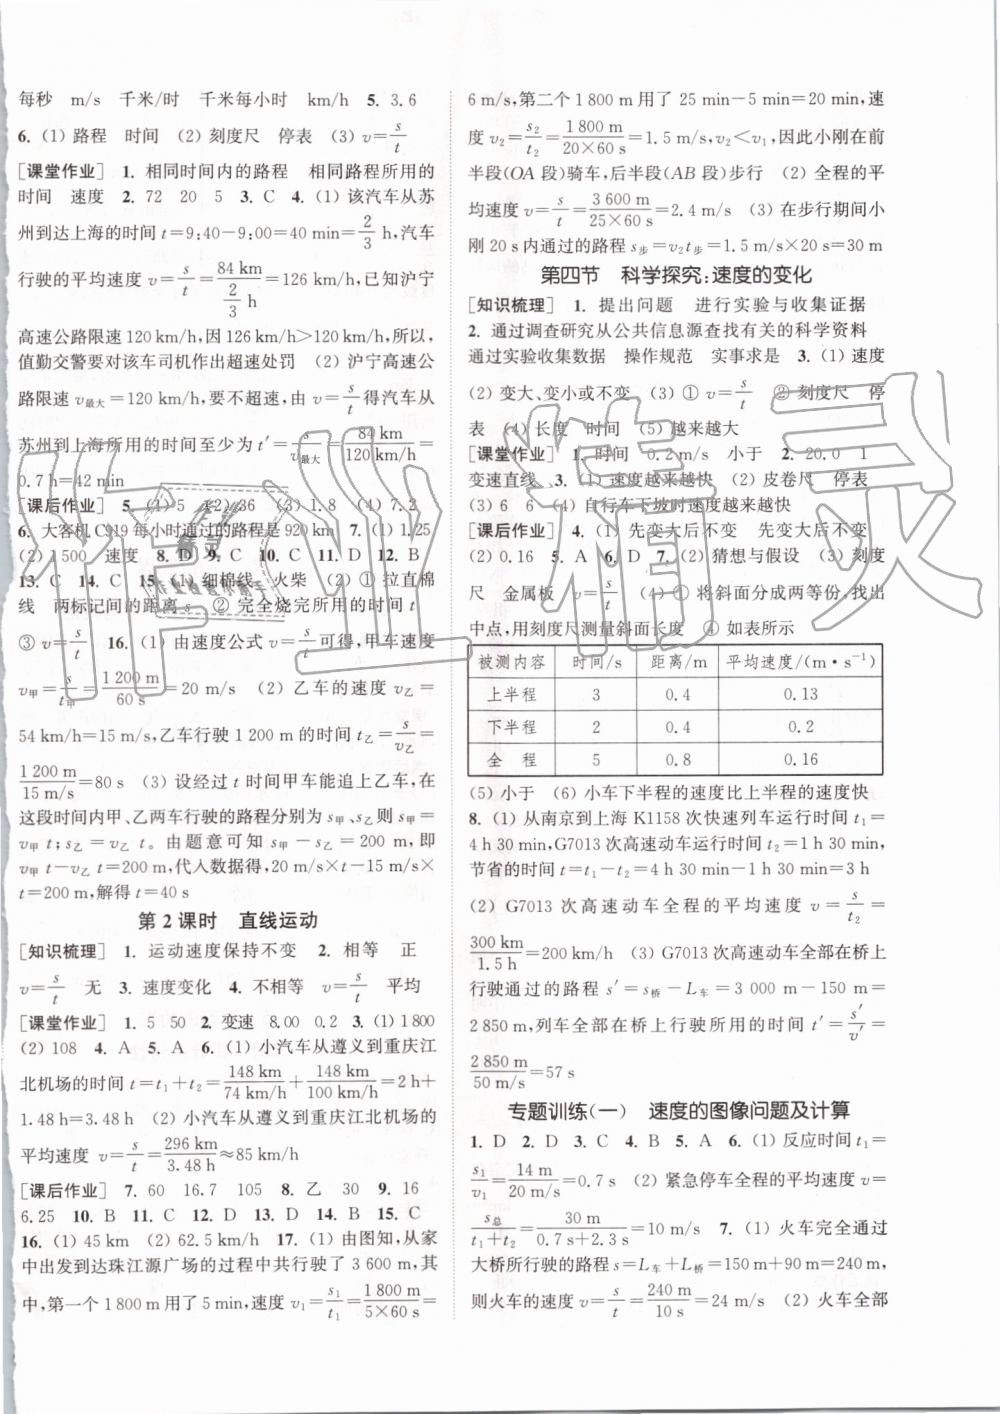 每秒 m/s 千米/时 千米每小时 km/h 5. 3.6
6. (1) 路程 时间 (2) 刻度尺 停表 (3) v=s/t
[课堂作业] 1. 相同时间内的路程 相同路程所用的
时间 速度 2. 72 20 5 3. C 4. (1) 该汽车从苏
州到达上海的时间 t=9:40-9:00=40 min=2/3 h,汽车
行驶的平均速度 v=s/t=84 km/(2/3 h)=126 km/h,已知沪宁
高速公路限速 120 km/h,因 126 km/h>120 km/h,所以,
值勤交警要对该车司机作出超速处罚 (2) 沪宁高速公
路限速 v最大=120 km/h,要不超速,由 v=s/t得汽车从
苏州到上海所用的时间至少为 t′=s/v最大=84 km/120 km/h=
0.7 h=42 min
[课后作业] 5. (1) 5 (2) 36 (3) 1.8 (4) 7.2
6. 大客机 C919 每小时通过的路程是 920 km 7. (1) 1.25
(2) 1 500 速度 8. D 9. C 10. C 11. D 12. B
13. C 14. C 15. (1) 细棉线 火柴 (2) ① 拉直棉
线 两标记间的距离 s ② 完全烧完所用的时间 t
③ v=s/t 16. (1) 由速度公式 v=s/t可得,甲车速度
v甲=s/t甲=1 200 m/60 s=20 m/s (2) 乙车的速度 v乙=
54 km/h=15 m/s,乙车行驶 1 200 m 的时间 t乙=s/v乙=
1 200 m/15 m/s=80 s (3) 设经过 t 时间甲车能追上乙车,在
这段时间内甲、乙两车行驶的路程分别为 s甲、s乙则 s甲=
v甲 t;s乙=v乙 t。由题意可知 s甲-s乙=200 m,即
v甲 t-v乙 t=200 m,代入数据得,20 m/s×t-15 m/s×
t=200 m,解得 t=40 s
第 2 课时 直线运动
[知识梳理] 1. 运动速度保持不变 2. 相等 正
v=s/t 无 3. 速度变化 4. 不相等 v=s/t 平均
[课堂作业] 1. 5 50 2. 变速 8.00 0.2 3. (1) 1 800
(2) 108 4. A 5. A 6. (1) 小汽车从遵义到重庆江
北机场的时间 t=t1+t2=148 km/74 km/h+148 km/100 km/h=2 h+
1.48 h=3.48 h (2) 小汽车从遵义到重庆江北机场的
平均速度 v=s/t=296 km/3.48 h≈85 km/h
[课后作业] 7. 60 16.7 105 8. 乙 30 9. 16
6.25 10. B 11. C 12. D 13. D 14. B 15. C
16. (1) 45 km (2) 62.5 km/h 17. (1) 由图知,从家
中出发到达珠江源广场的过程中共行驶了 3 600 m,其
中,第一个 1 800 m 用了 5 min,速度 v1=s1/t1=1 800 m/5×60 s=
6 m/s,第二个 1 800 m 用了 25 min-5 min=20 min,速
度 v2=s2/t2=1 800 m/20×60 s=1.5 m/s,v2<v1,因此小刚在前
半段(OA 段)骑车,后半段(AB 段)步行 (2) 全程的平
均速度 v=s/t=3 600 m/25×60 s=2.4 m/s (3) 在步行期间小
刚 20 s 内通过的路程 s步=v2t步=1.5 m/s×20 s=30 m
第四节 科学探究:速度的变化
[知识梳理] 1. 提出问题 进行实验与收集证据
2. 通过调查研究从公共信息源查找有关的科学资料
通过实验收集数据 操作规范 实事求是 3. (1) 速度
(2) 变大、变小或不变 (3) ① v=s/t ② 刻度尺 停
表 (4) 长度 时间 (5) 越来越大
[课堂作业] 1. 时间 0.2 m/s 小于 2. 20.0 1
变速直线 3. (1) 速度越来越快 (2) 皮卷尺 停表
(3) 6 6 (4) 自行车下坡时速度越来越快
[课后作业] 4. (1) 先变大后不变 先变大后不变
(2) 0.16 5. A 6. D 7. (2) 猜想与假设 (3) 刻度
尺 金属板 v=s/t (4) ① 将斜面分成两等份,找出
中点,用刻度尺测量斜面长度 ④ 如表所示
被测内容 时间/s 距离/m 平均速度/(m·s⁻¹)
上半程 3 0.4 0.13
下半程 2 0.4 0.2
全 程 5 0.8 0.16
(5) 小于 (6) 小车下半程的速度比上半程的速度快
8. (1) 从南京到上海 K1158 次快速列车运行时间 t1=
4 h 30 min,G7013 次高速动车运行时间 t2=1 h 30 min,
节省的时间=t1-t2=4 h 30 min-1 h 30 min=3 h
(2) G7013 次高速动车全程的平均速度 v=s/t2=
300 km/1.5 h=200 km/h (3) G7013 次高速动车全部在桥上
行驶通过的路程 s′=s桥-L车=3 000 m-150 m=
2 850 m,列车全部在桥上行驶所用的时间 t′=s′/v′=
2 850 m/50 m/s=57 s
专题训练(一) 速度的图像问题及计算
1. D 2. D 3. C 4. B 5. A 6. (1) 反应时间 t1=
s1/v1=14 m/20 m/s=0.7 s (2) 紧急停车全程的平均速度 v=
s总/t1+t2=30 m/0.7 s+2.3 s=10 m/s 7. (1) 火车完全通过
大桥所行驶的路程 s=L车+L桥=150 m+90 m=240 m,
则火车的速度 v=s/t=240 m/10 s=24 m/s (2) 火车全部
作业精灵